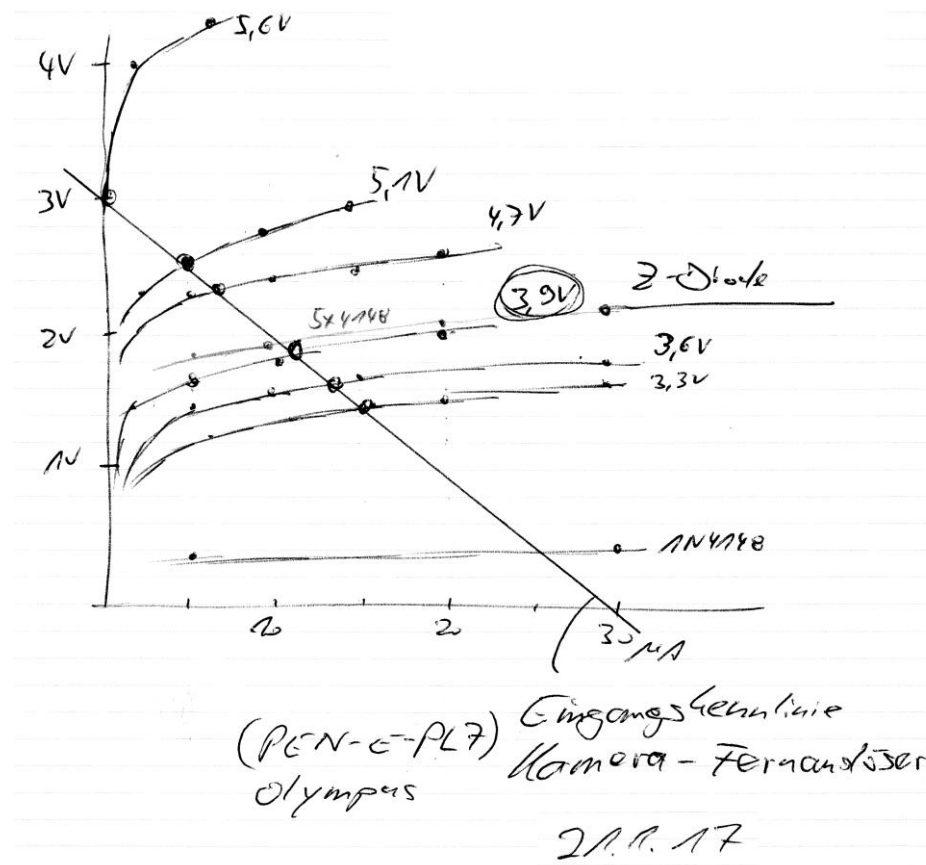 5,6V
4V
3V
5,1V
4,7V
3,9V
Z-Diode
2V
5x4148
3,6V
3,3V
1V
1N4148
10
20
30 µA
(PEN-E-PL7)
Olympus
Eingangskennlinie
Kamera-Fernauslöser
21.1.17